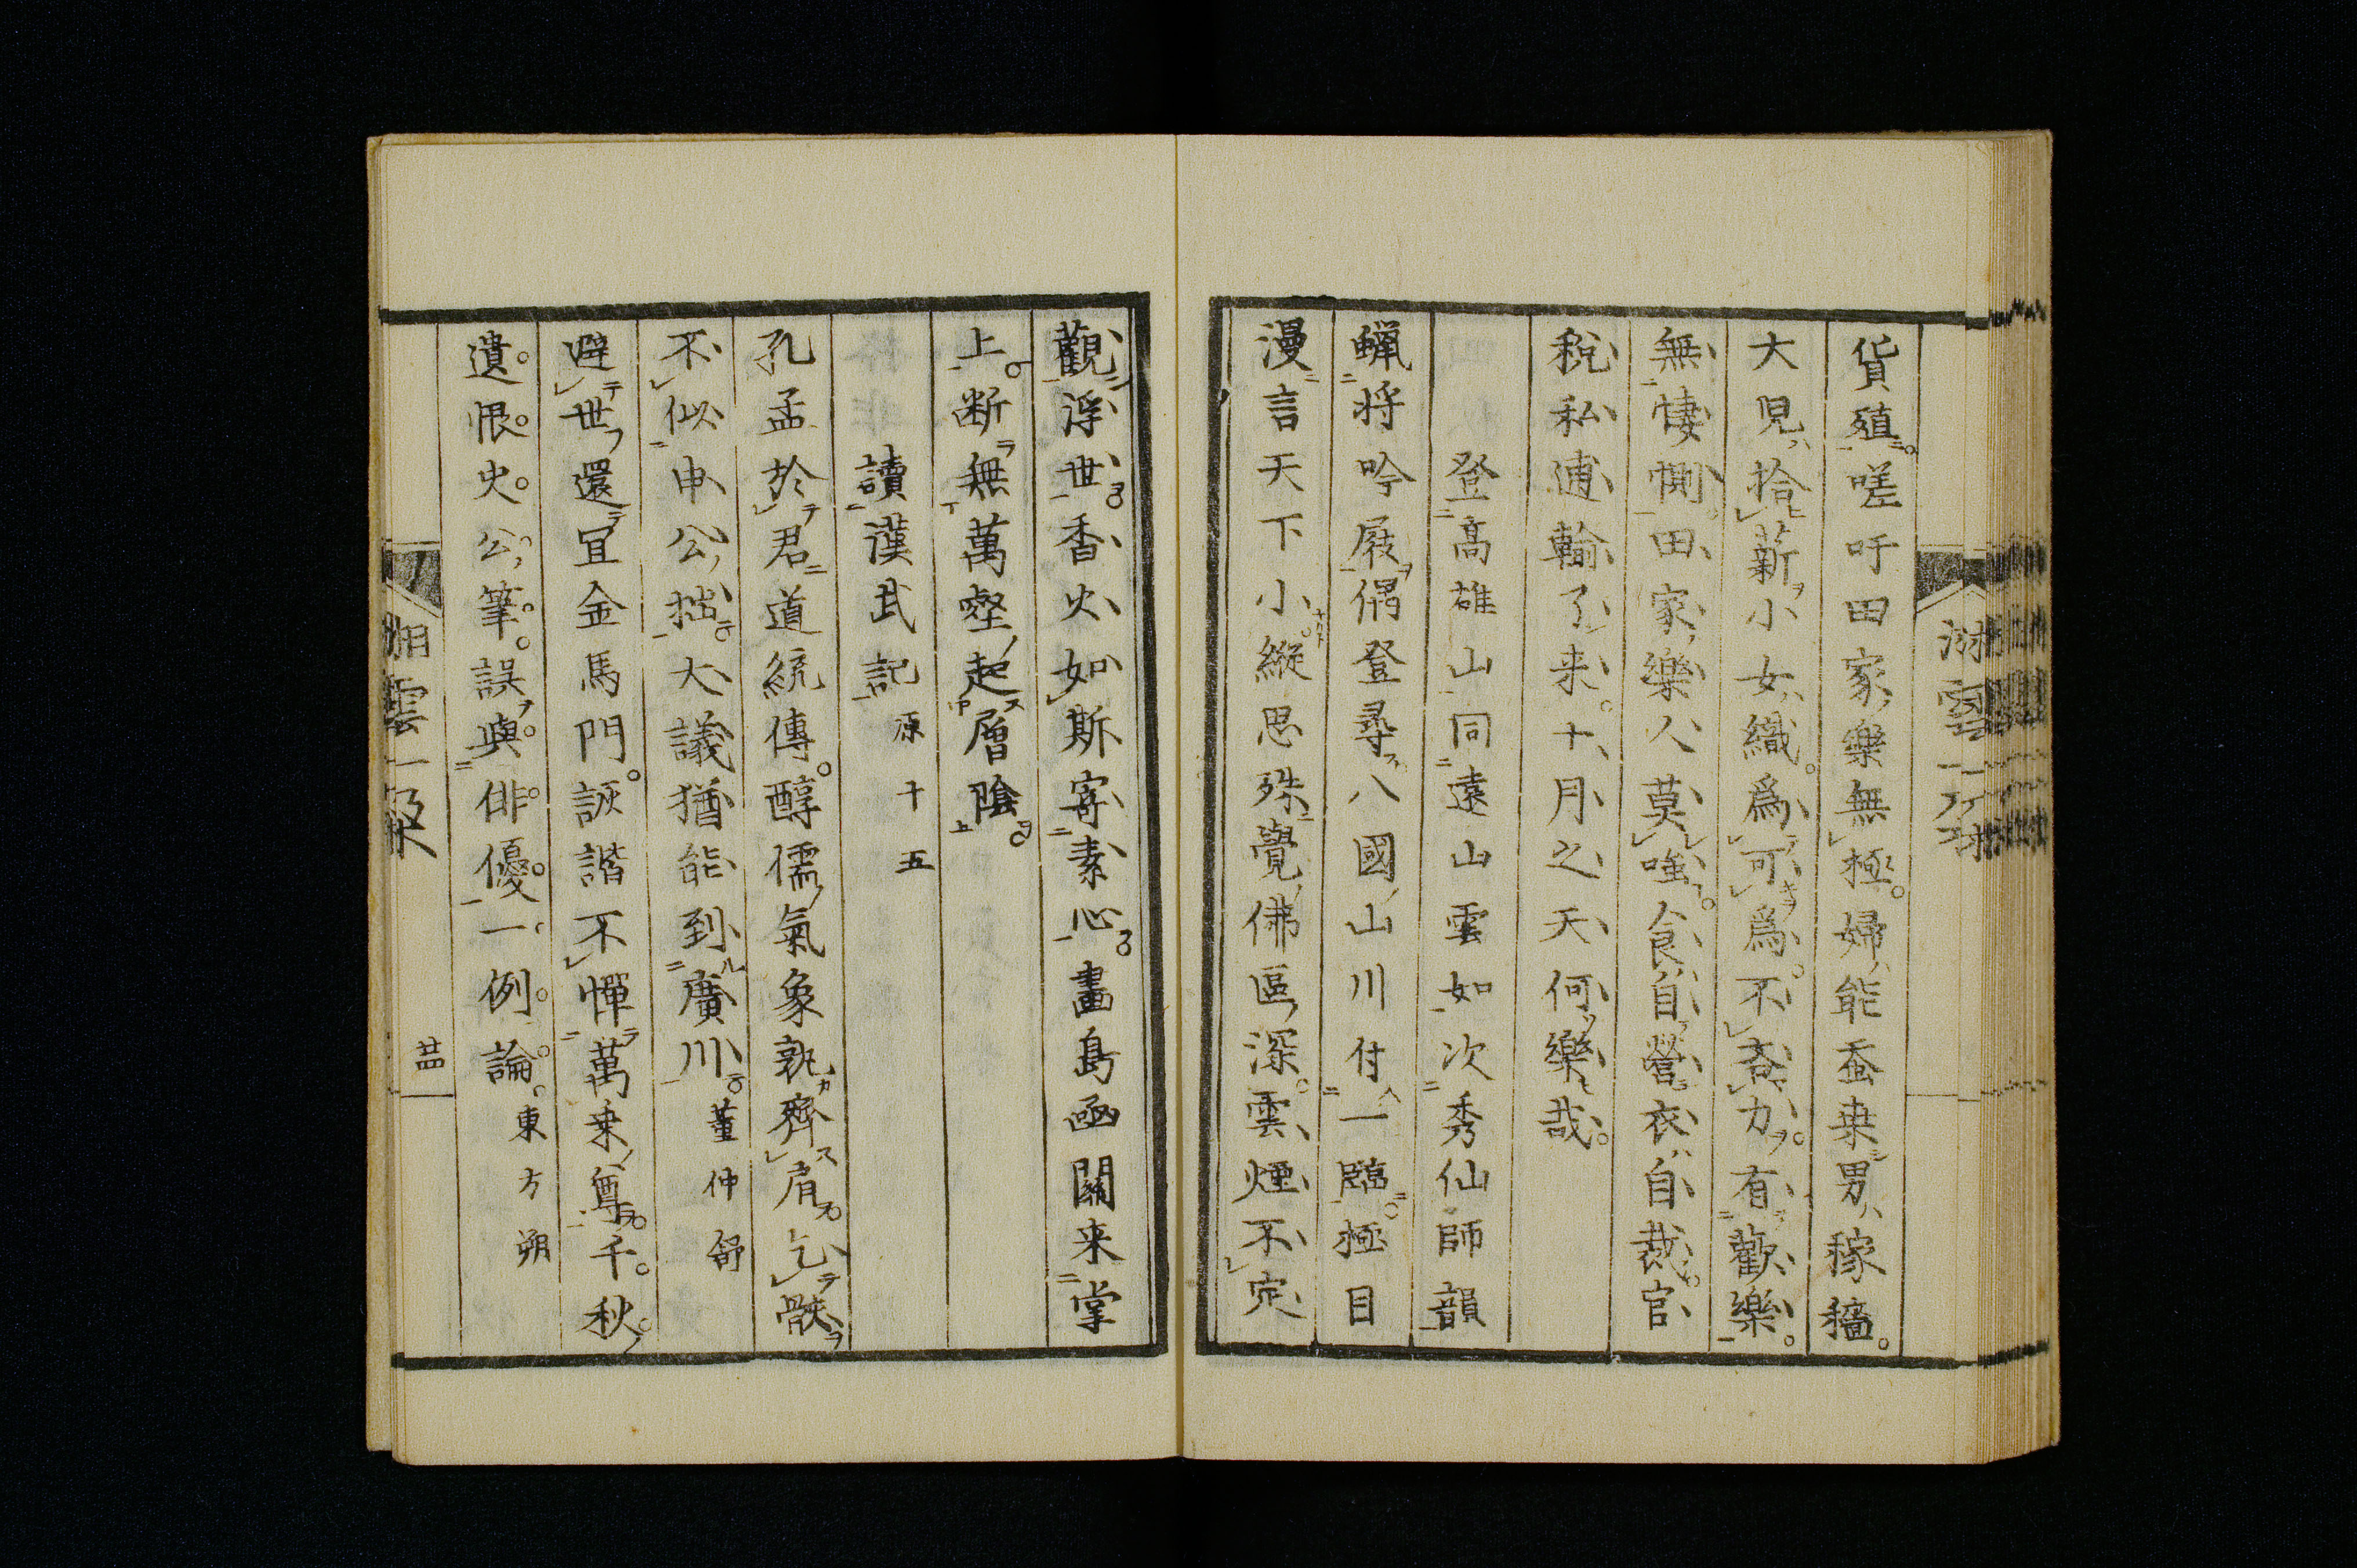 貨殖嗟吁田家樂無極婦能蚕桒男稼穡
大児拾薪小女織爲可爲不吝力有歡樂
無悽惻田家樂人莫嗤食自營衣自裁官
税私逋輸了来十月之天何樂哉
登高雄山同遠山雲如次秀仙師韻
蝋将吟屐偶登尋八國山川付一臨極目
漫言天下小縱思殊覺佛區深雲煙不定
觀浮世香火如斯寄素心畵島凾關来掌
上断無萬壑起層陰
讀漢武記原十五
孔孟於君道統傳醇儒氣象孰齊肩乞骸
不似申公拙大議猶能到廣川董仲舒
避世還冝金馬門詼諧不憚萬乗尊千秋
遺恨史公筆誤與俳優一例論東方朔
湘雲一朶